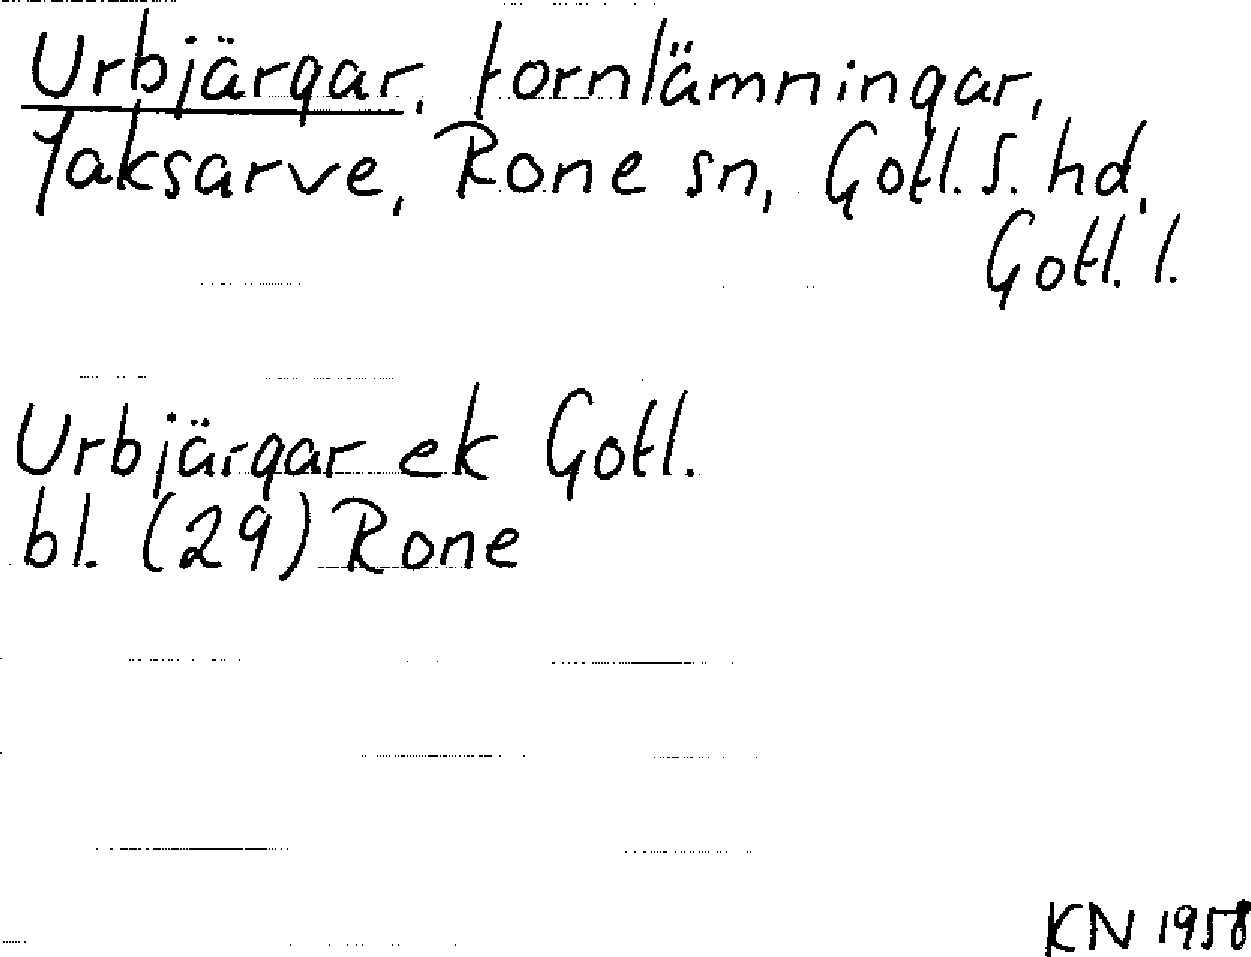 Urbjärgar, fornlämningar,
Jaksarve, Rone sn, Gotl. S. hd,
Gotl. l.
Urbjärgar ek Gotl.
bl. (29) Rone
KN 1958